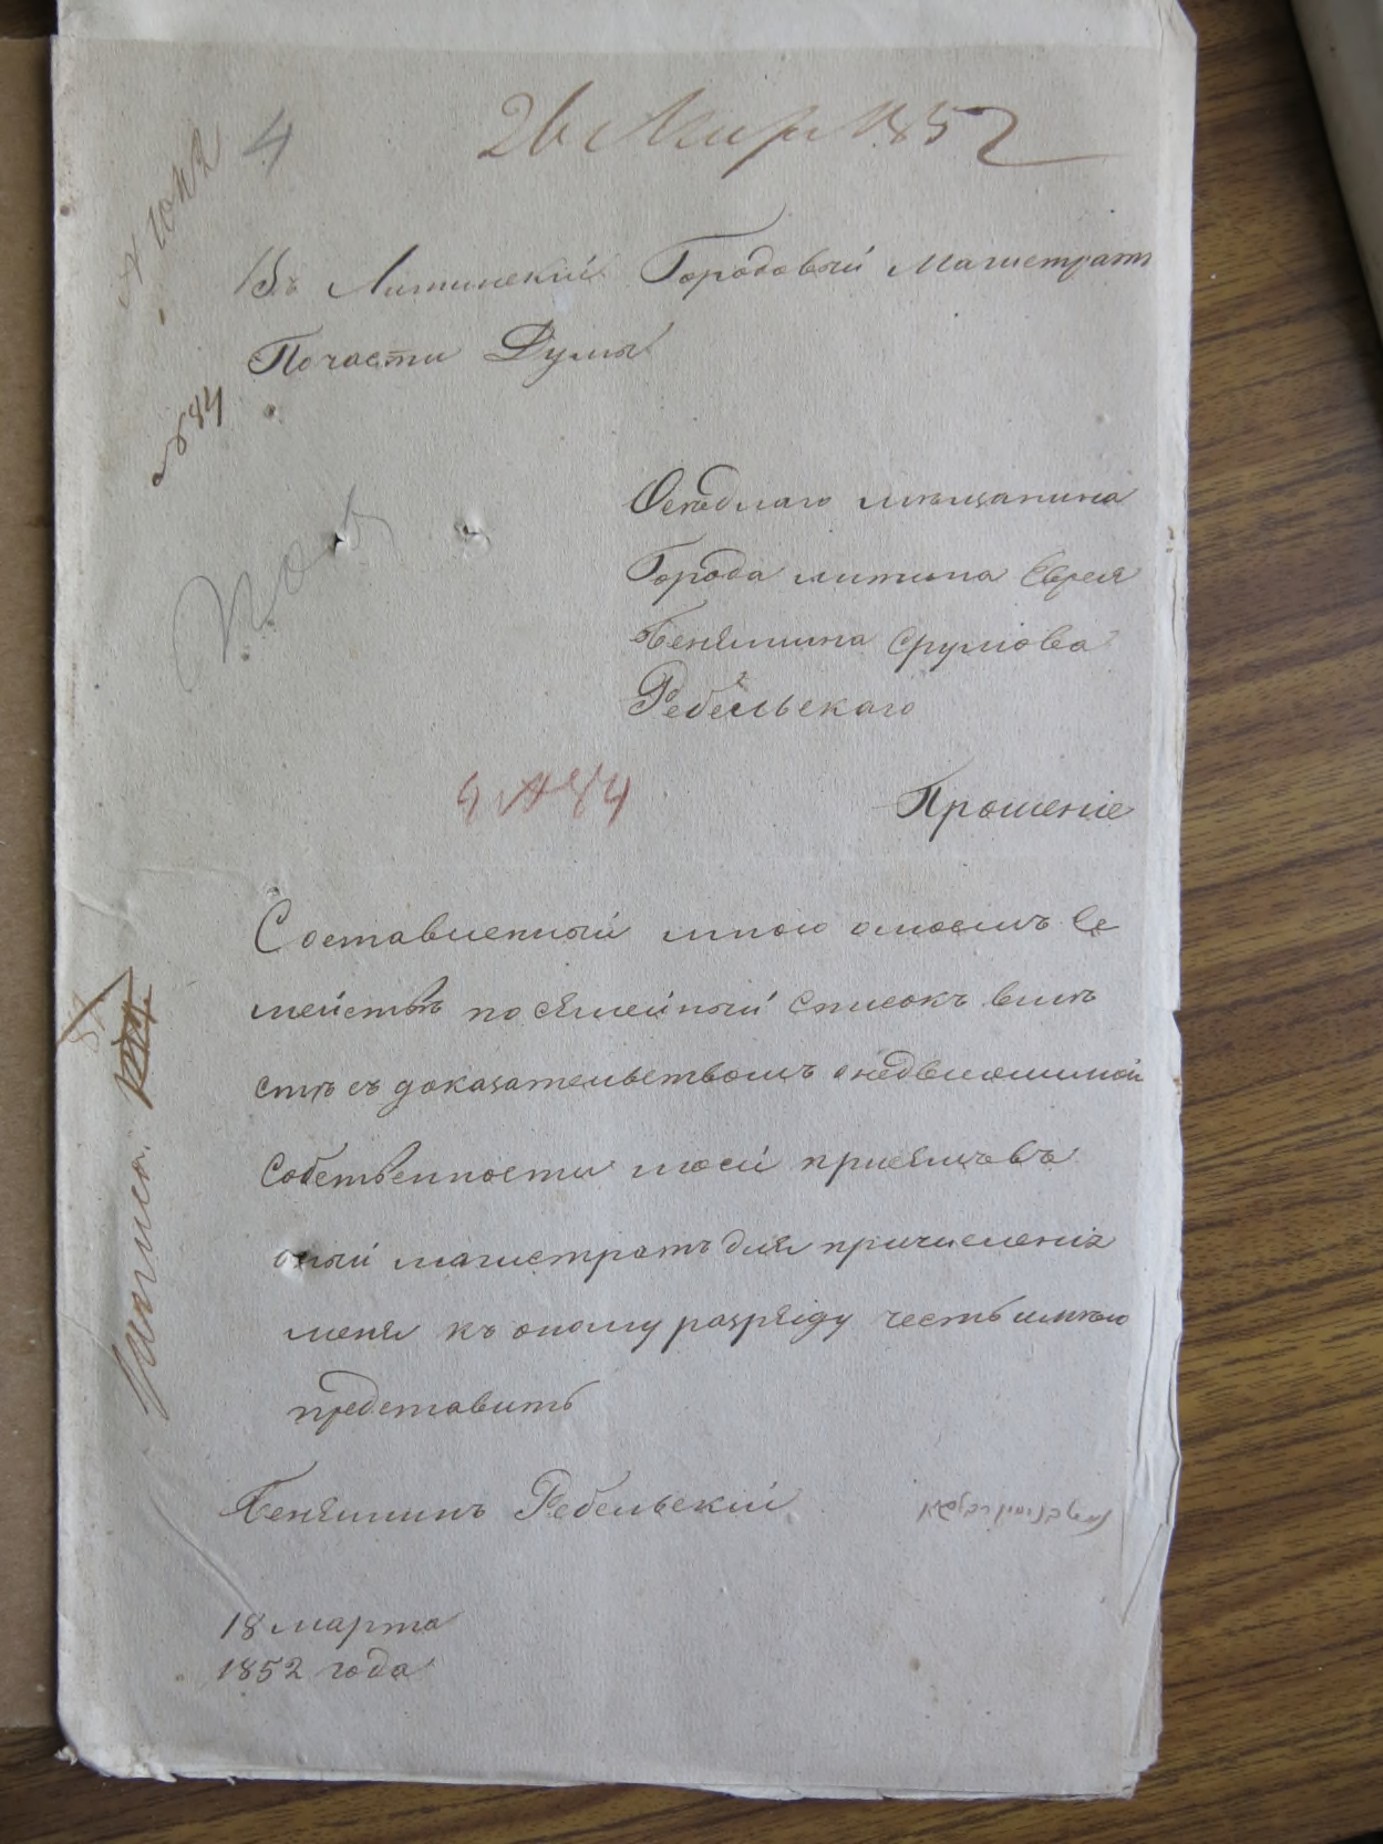 4
26 Мар 1852
Въ Литинскій Городовый Магистратъ
По части Думы
№ 84
Осѣдлаго мѣщанина
Города литина Еврея
Бенямина Срулiова
Ребельскаго
4 № 84
Прошеніе
Составленный мною омоемъ Се
мействѣ посямейный Списокъ вмѣ
стѣ съ доказательствомъ о недвиюшимой
Собственности моей приемцовъ
оный магистратъ для причисленія
меня къ оному разряду честь имѣю
представить
Беняминъ Ребельскій
18 марта
1852 года